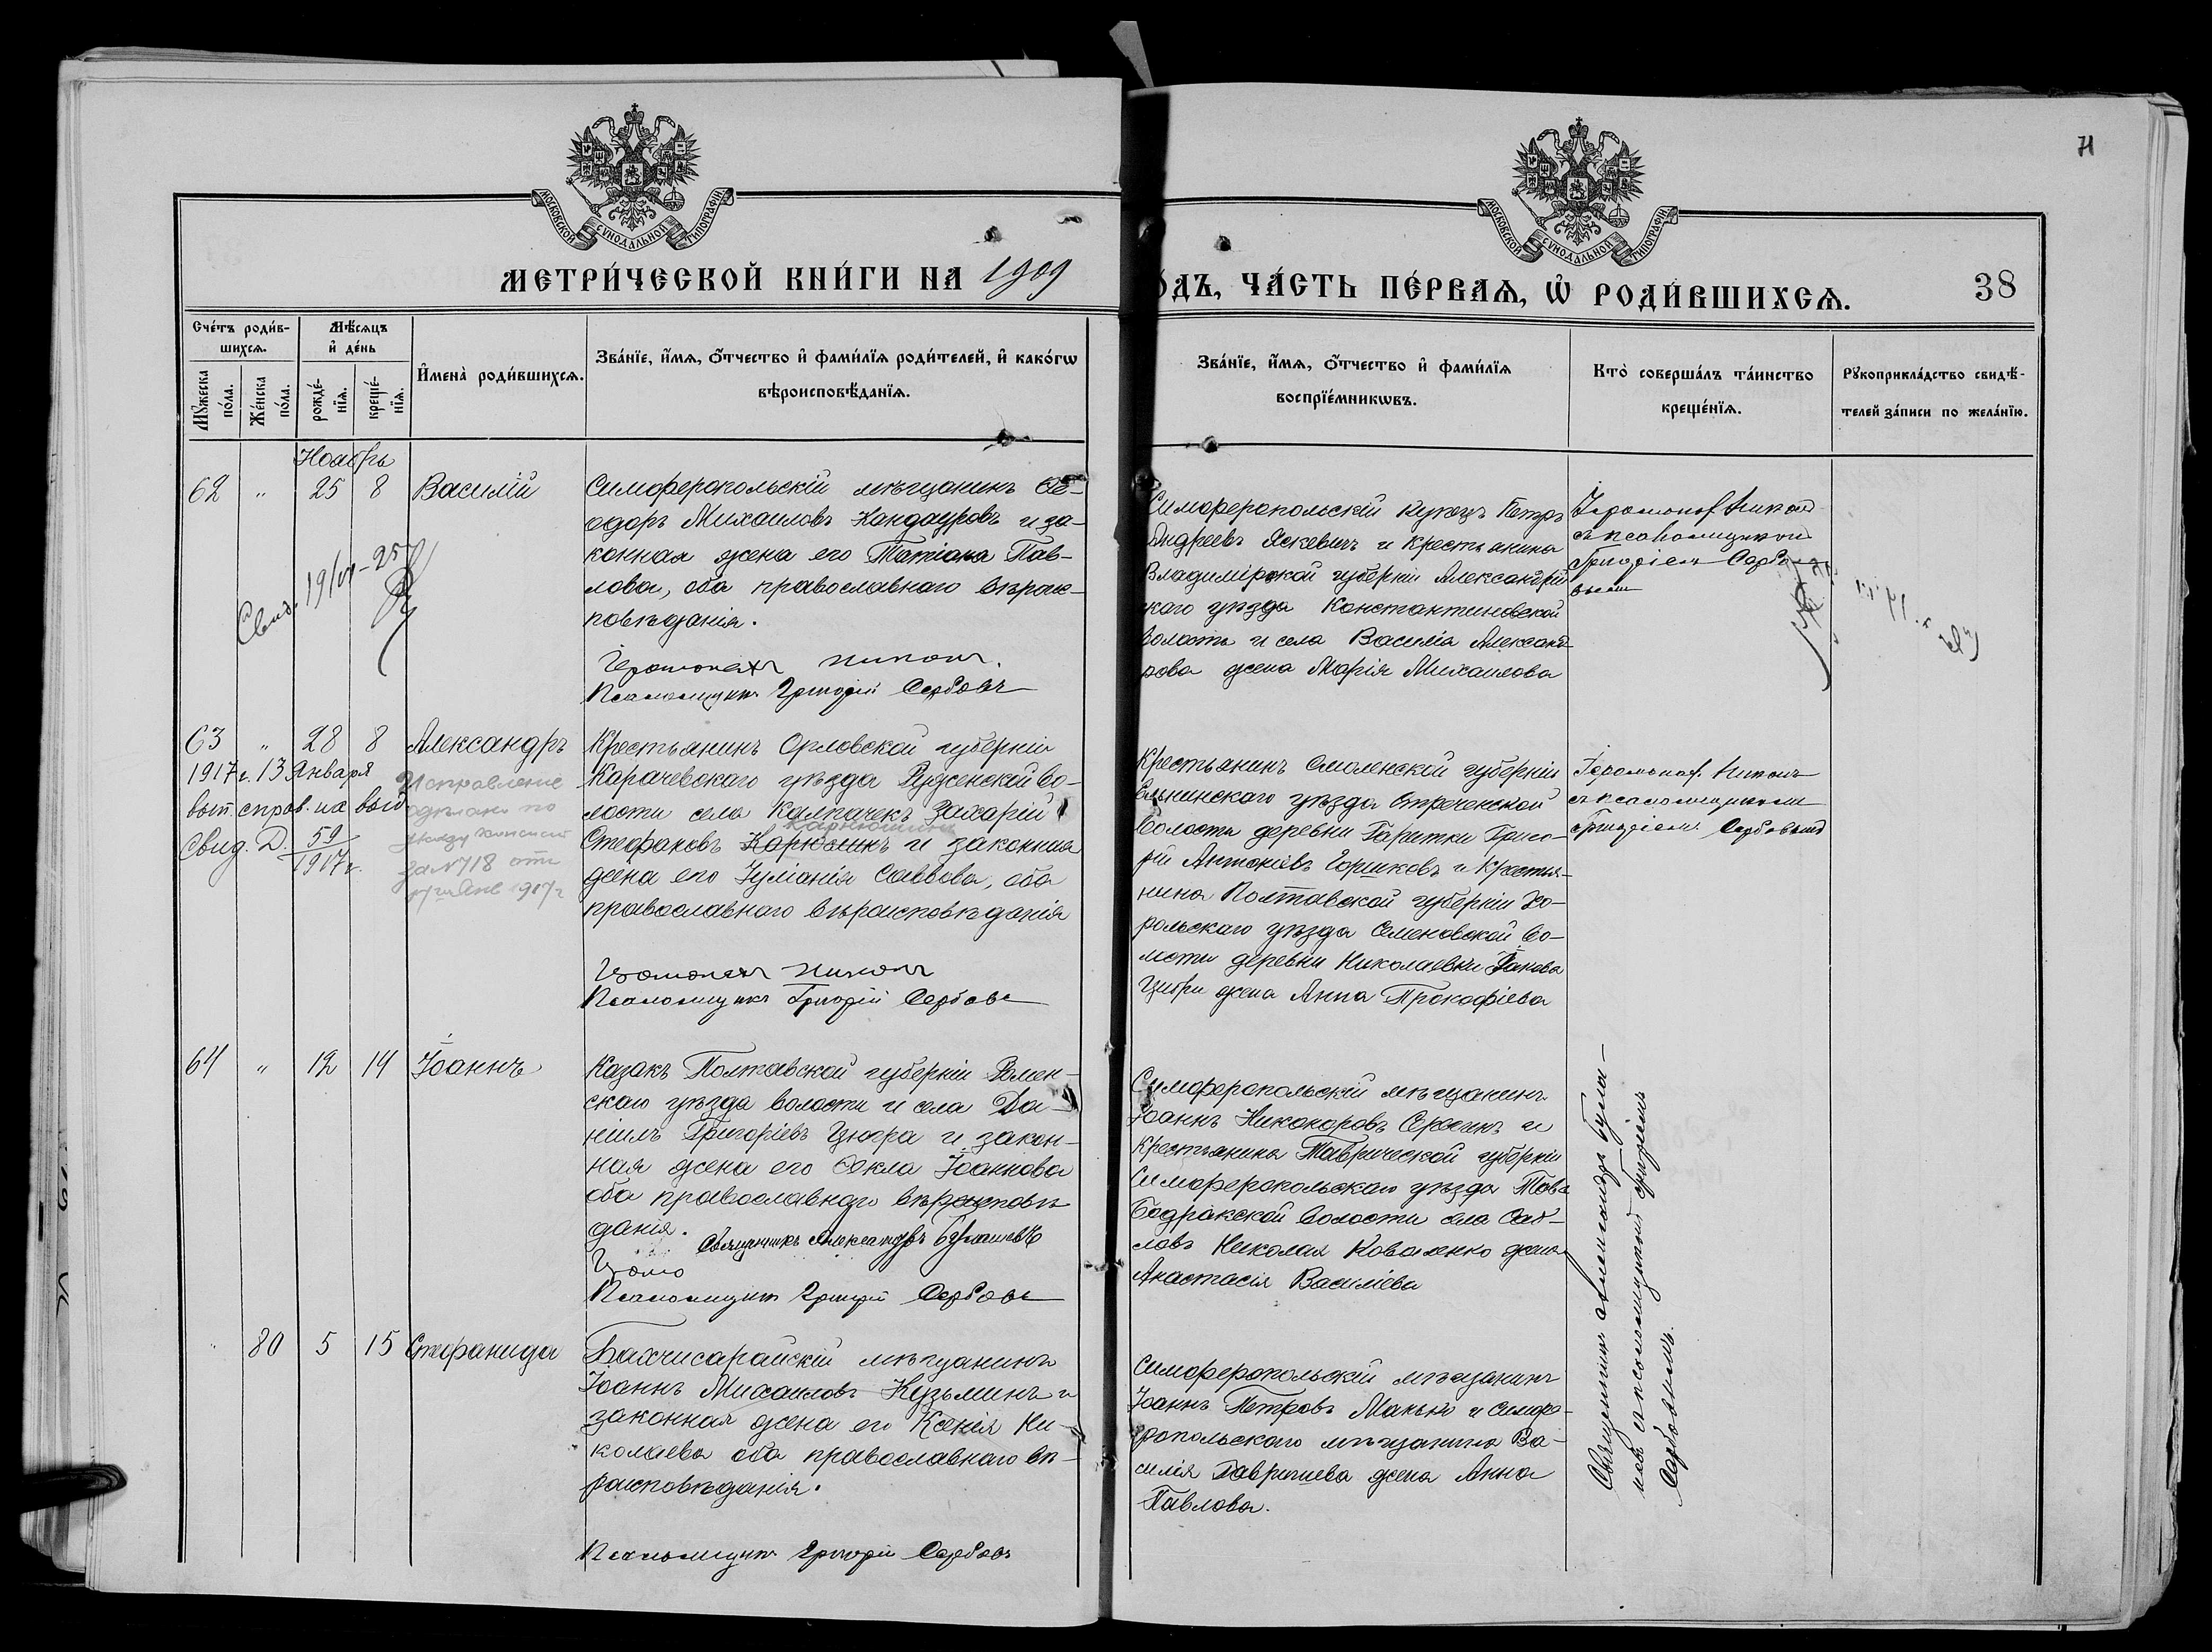 71
МОСКОВСКОЙ СѴНОДАЛЬНОЙ ТИПОГРАФІИ.
МОСКОВСКОЙ СѴНОДАЛЬНОЙ ТИПОГРАФІИ.
МЕТРИ́ЧЕСКОЙ КНИ́ГИ НА 1909
ОДЪ, ЧА́СТЬ ПЕ́РВАѦ, Ѡ҆ РОДИ́ВШИХСѦ.
38
Сче́тъ роди́в-
шихсѧ.
Мѣ́сѧцъ
и҆ де́нь
Мꙋ́жеска
по́ла.
Же́нска
по́ла.
рожде́-
нїѧ.
креще́-
нїѧ.
И҆мена̀ роди́вшихсѧ.
Зва́нїе, и҆́мѧ, ѻ҆́тчество и҆ фами́лїѧ роди́телей, и҆ како́гѡ
вѣроисповѣ́данїѧ.
Зва́нїе, и҆́мѧ, ѻ҆́тчество и҆ фами́лїѧ
воспрїе́мникѡвъ.
Кто̀ соверша́лъ та́инство
креще́нїѧ.
Рꙋкоприкла́дство свидѣ́-
телей за́писи по жела́нїю.
Ноябрь
62 " 25 8 Василій
Симферопольскій мѣщанинъ Ѳе-
одоръ Михаиловъ Кандауровъ и за-
конная жена его Татіана Пав-
лова, оба православнаго вѣроис-
повѣданія.
Іеромонахъ Никонъ.
Псаломщикъ Григорій Сербовъ
Свид. 19/VI-25
Симферопольскій купецъ Петръ
Андреевъ Яскевичъ и крестьянина
Владимірской губерніи Александрій
скаго уѣзда Константиновской
волости и села Василія Александ
рова жена Марія Михаилова
Іеромонах Никон
съ псаломщикомъ
Григоріемъ Сербо-
вымъ
63 " 28 8 Александръ
1917 г. 13 Января
выт. справ. на выд
Свид. Д. 59
1917 г.
Исправленіе
сдѣлано по
указу Консист
за № 718 отъ
Янв 1917 г
Крестьянинъ Орловской губерніи
Карачевскаго уѣзда Руженской во-
лости села Калпачекъ Захарій
Стефановъ Карюшинъ и законная
жена его Іуліанія Саввова, оба
православнаго вѣроисповѣданія
Іеромонахъ Никонъ
Псаломщикъ Григорій Сербовъ
Крестьянинъ Смоленской губерніи
Ельнинскаго уѣзда
волости деревни Гаритки Григо-
рій Антоніевъ Горшковъ и крестья-
нина Полтавской губерніи Хо-
рольскаго уѣзда Семеновской во-
лости деревни Николаевки Іакова
жена Анна Прокофіева
Іеромонах. Никонъ
съ псаломщикомъ
Григоріемъ Сербовымъ
64 " 12 14 Іоаннъ
Казакъ Полтавской губерніи Ромен-
скаго уѣзда волости и села Да-
ніилъ Григоріевъ Цюгра и закон-
ная жена его Ѳекла Іоаннова
оба православнаго вѣроисповѣ
данія.
Священникъ Александръ
Іеромо
Псаломщикъ Григорій Сербовъ
Симферопольскій мѣщанинъ
Іоаннъ Никаноровъ Серегинъ и
крестьянина Таврической губерніи
Симферопольскаго уѣзда Тав
Бодракской волости села Саб-
лов Николая Коваленко жена
Анастасія Василіева
Священникъ Александръ
съ псаломщикомъ Григоріемъ
Сербовымъ.
80 5 15 Стефанида
Бахчисарайскій мѣщанинъ
Іоаннъ Михаиловъ Кузьминъ и
законная жена его Ксенія Ни-
колаева оба православнаго вѣ-
роисповѣданія.
Псаломщикъ Григорій Сербовъ
Симферопольскій мѣщанинъ
Іоаннъ Петровъ Манько и симфе-
ропольскаго мѣщанина Ва-
силія Гавришева жена Анна
Павлова.